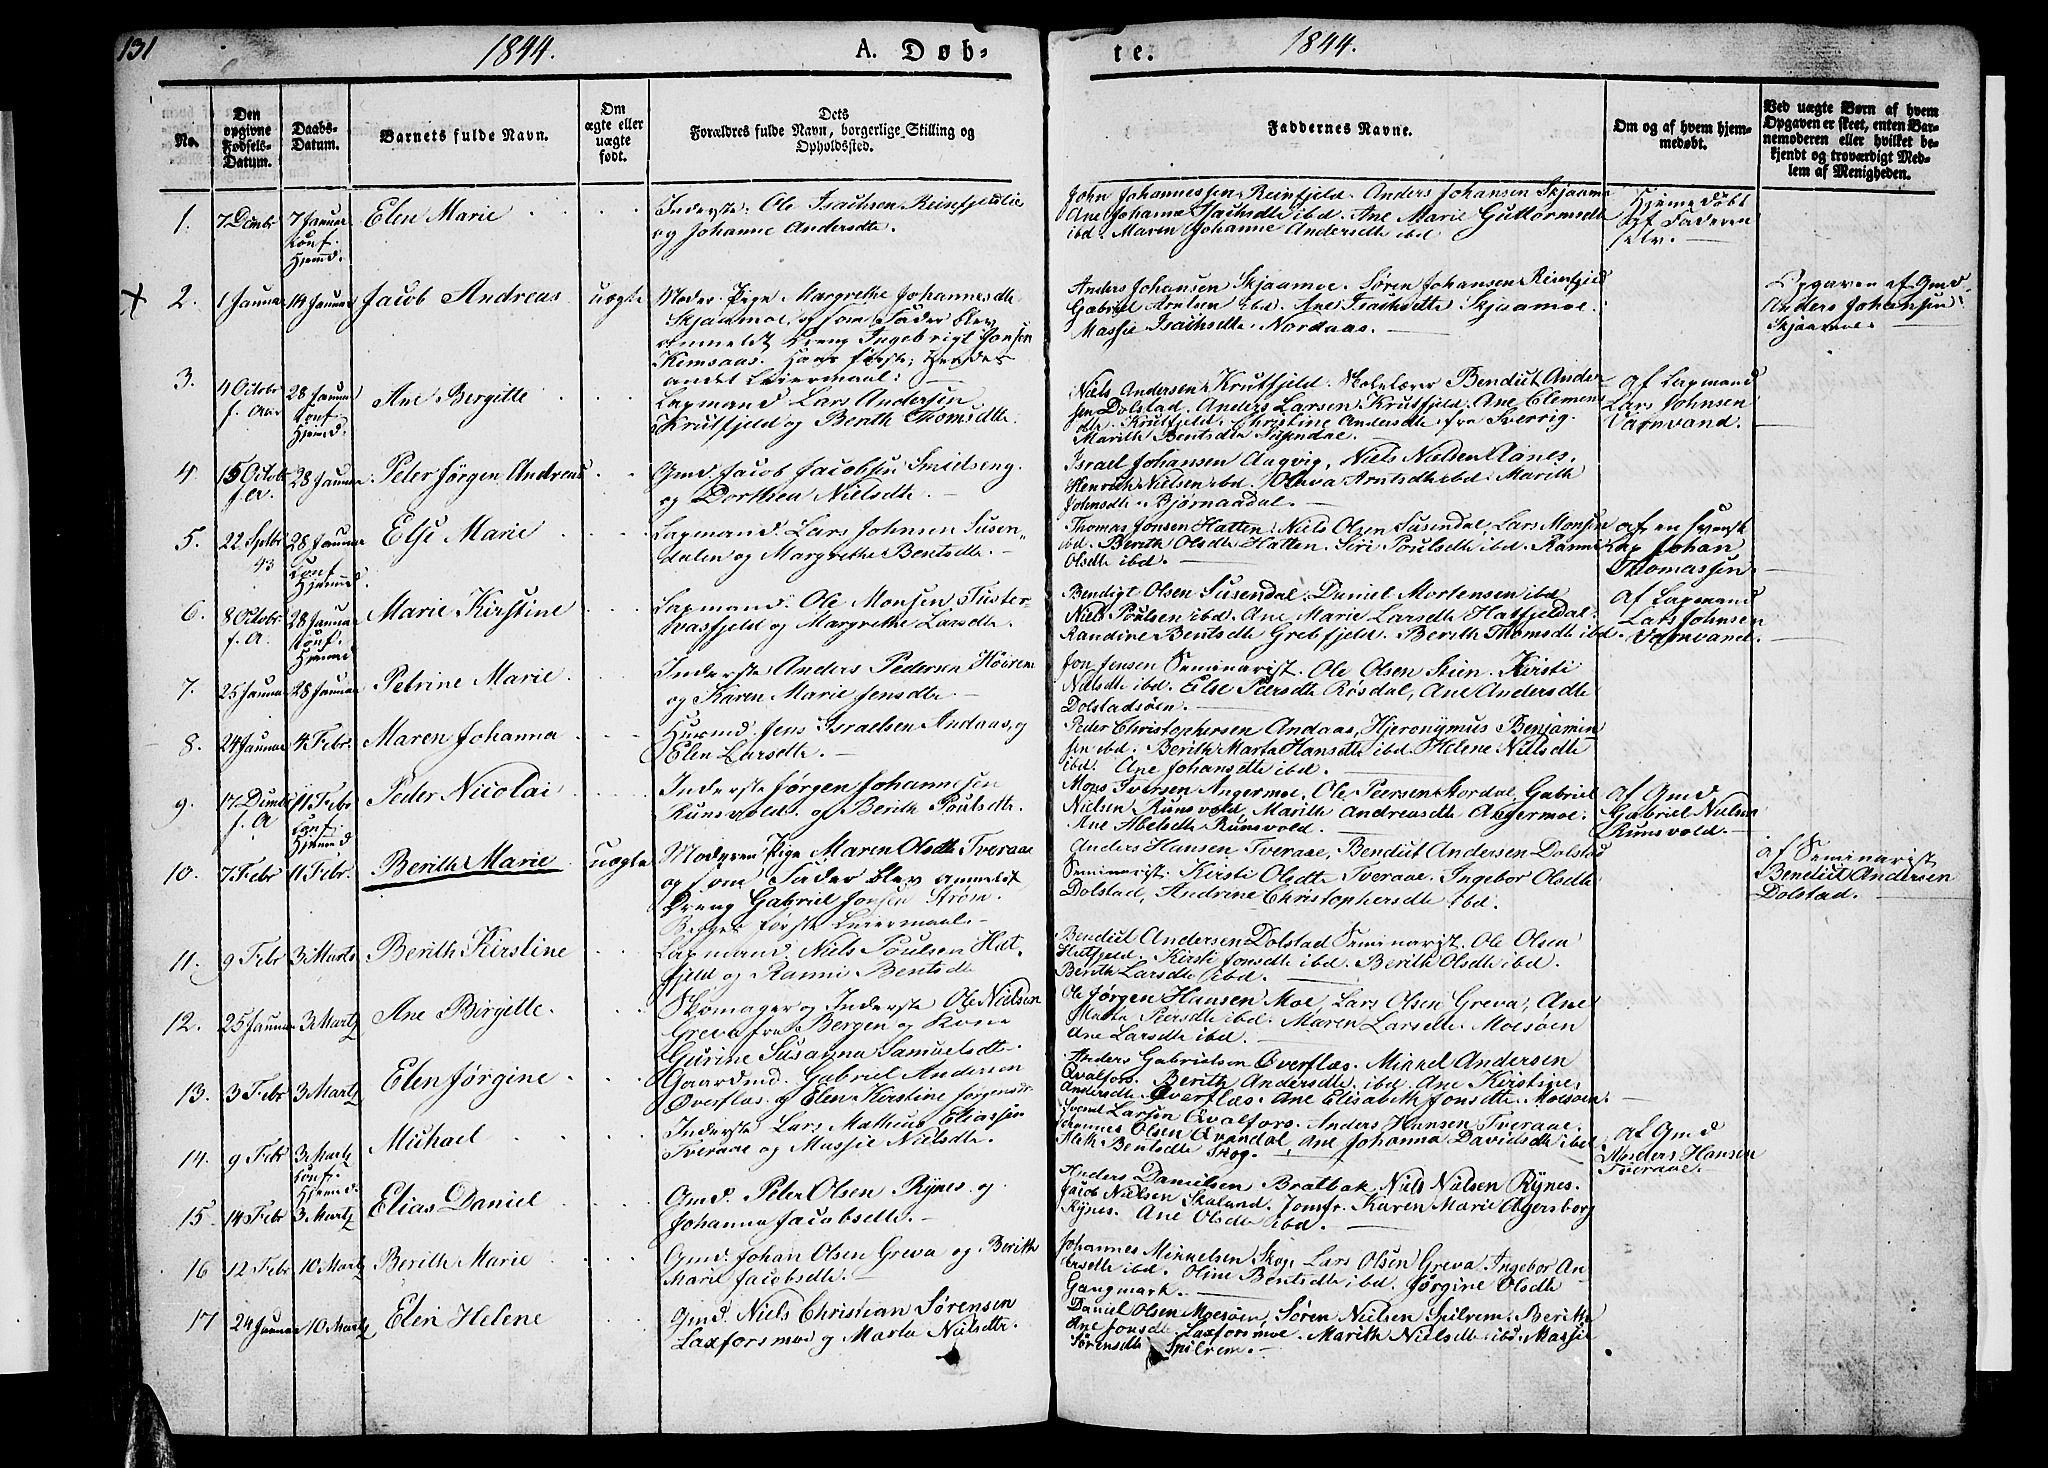 131
1844.
A. Døb-
te.
1844.
No.
Den
opgivne
Fødsels-
Datum.
Daabs-
Datum.
Barnets fulde Navn.
Om
ægte eller
uægte
født.
Dets
Forældres fulde Navn, borgerlige Stilling og
Opholdssted.
Faddernes Navne.
Om og af hvem hjem-
medøbt.
Ved uægte Børn af hvem
Opgaven er skeet, enten Bar-
nemoderen eller hvilket be-
kjendt og troværdigt Med-
lem af Menigheden.
1.
7 Dcmbr
7 Januar
Conf.
Hjemd.
Elen Marie
Inderste: Ole Isachsen Reinfjeldlie
og Johanne Andersdtr.
John Johannessen Reinfjeld. Anders Johansen Skjaamo
Ane Johanna Isachsdtr ibd. Ane Marie Guttormsdtr
ibd. Maren Johanne Andersdtr ibd
Hjemedøbt
af Faderen
selv.
2.
1 Januar
14 Januar
Jacob Andreas
uægte
Moder: Pige Margrethe Johannesdtr
Skjaamoe, og som Fader blev
anmeldt Dreng Ingebrigt Jonsen
Kemsaas. Hans første; Hendes
andet Leiermaal:
Anders Johansen Skjaamoe. Søren Johansen Reinfjeld
Gabriel Arntsen ibd. Ane Isachsdtr Skjaamoe.
Massie Isachsdtr Nordaas.
Opgaven af Gmd
Anders Johansen
Skjaamoe.
3.
4 Octobr
f. Aar
28 Januar
Conf
Hjemd.
Ane Bergitte
Lapmand Lars Andersen
Krutfjeld og Berith Thomsdtr.
Niels Andersen Krutfjeld. Skolelærer Bendict Ander-
sen Dolstad. Anders Larsen Krutfjeld. Ane Clemens
dtr. Krutfjeld. Christine Andersdtr fra Sverrig.
Marith Bentsdtr Susendal.
af Lapmand
Lars Johnsen
Varnvand.
4.
15 Octobr
f. A.
28 Januar
Peter Jørgen Andreas
Gmd. Jacob Jacobsen Smidseng
og Dorthea Nielsdtr.
Israel Johansen Aagvig, Niels Nilsen Ranes,
Henrich Nielsen ibd. Oluva Arntsdtr ibd. Marith
Johnsdtr. Bjørnaadal.
5.
22 Septbr
43
28 Januar
Conf
Hjemmed.
Else Marie
Lapmand. Lars Johnsen Susen-
dalen og Margrethe Bentsdtr.
Thomas Jonsen Hatten. Niels Olsen Susendal, Lars Monsen
ibd. Berith Olsdtr Hatten. Siri Poulsdtr ibd. Ranni
Olsdtr ibd.
af en svensk
Lap Johan
Thomassen
6.
8 Octobr
f. A.
28 Januar
Conf.
Hjemmed
Marie Kirstine
Lapmand. Ole Monsen Tuster-
vasfjeld og Margrethe Larsdtr.
Bendigt Olsen Susendal. Daniel Mortensen ibd
Niels Poulsen ibd. Ane Marie Larsdtr Hatfjeldal.
Randine Bentsdtr Grebfjeld. Berith Thomsdtr ibd.
af Lapmand
Lars Johnsen
Varnvand.
7.
25 Januar
28 Januar
Petrine Marie
Inderste Anders Pedersen
og Karen Marie Jensdtr.
Jon Jensen Seminarist. Ole Olsen Skien. Kirsti
Nilsdtr ibd. Else Peersdtr Røsdal, Ane Andersdtr
Dolstadsøen.
8.
24 Januar
4 Febr.
Maren Johanna
Huusmd. Jens Israelsen Andaas, og
Elen Larsdtr.
Peder Christophersen Andaas, Hjeronÿmus Benjamin
sen ibd. Berith Marta Hansdtr ibd. Helene Nielsdtr
ibd. Ane Johansdtr ibd.
9.
17 Dcmbr
f. A
11 Febr
Conf.
Hjemmed
Peder Nicolai
Inderste Jørgen Johannessen
Runsvold. og Berith Poulsdtr.
Mons Iversen Angermoe. Ole Peersen Mordal, Gabriel
Nielsen Runsvold, Marith Andreasdtr Angermoe.
Ane Abelsdtr Runsvold.
af Gmd
Gabriel Nielsen
Runsvold.
10.
7 Febr
11 Febr.
Berith Marie
uægte
Moderen Pige Maren Olsdtr Tveraae
og som Fader blev anmeldt
Dreng Gabriel Jonsen Strøm.
Begges første Leiermaal.
Anders Hansen Tveraae, Bendict Andersen Dolstad
Seminarist. Kirsti Olsdtr Tveraae. Ingebor Olsdtr
Dolstad, Andrine Christophersdtr ibd.
af Seminarist
Bendict Andersen
Dolstad.
11.
9 Febr
3 Marts
Berith Kirstine
Lapmand. Niels Poulsen Hat-
fjeld og Ranni Bentsdtr
Bendict Andersen Dolstad Seminarist. Ole Olsen
Hatfjeld. Kirsti Jonsdtr ibd. Berith Olsdtr ibd.
Berith Larsdtr ibd.
12.
25 Januar
3 Martz
Ane Birgitte.
Skomager og Inderste Ole Nielsen
Greva fra Bergen og Kone
Gurine Susanna Samuelsdtr.
Ole Jørgen Hansen Moe, Lars Olsen Greva, Ane
Marta Peersdtr ibd. Maren Larsdtr Moesøen
Ane Larsdtr ibd.
13.
3 Febr
3 Martz
Elen Jørgine
Gaardmd. Gabriel Andersen
Øverflæs. og Elen Kirstine Jørgensdtr
Anders Gabrielsen Øverflæs. Mikkel Andersen
Qvalfors. Berith Andersdtr. ibd. Ane Kirstine
Andersdtr Øverflæs. Ane Elisabeth Jonsdtr Moesøen.
14.
9 Febr
3 Martz
Conf.
Hjemd.
Michael
Inderste Lars Mathias Eliassen
Tveraae og Massie Nielsdtr.
Svend Larsen Qvalfors. Anders Hansen Tveraae.
Johannes Olsen Qvandal, Ane Johanna Davidsdtr ibd
Bentsdtr Skog.
af Gmd
Anders Hansen
Tveraae.
15.
14 Febr
3 Martz
Elias Daniel
Gmd. Peter Olsen Rynes. og
Johanna Jacobsdtr.
Anders Danielsen Bratbak, Niels Nielsen Rynes.
Jacob Nielsen Skaland. Jomfr. Karen Marie Agersborg
Rynes. Ane Olsdtr ibd.
16
12 Febr
10 Martz
Berith Marie
Gmd. Johan Olsen Greva og. Berith
Marie Jacobsdtr.
Johannes Mikkelsen Skog, Lars Olsen Greva, Ingebor An-
dersdtr ibd. Oline Bentsdtr ibd. Jørgine Olsdtr
Gangmark.
17
24 Januar
10 Martz
Elen Helene
Gmd. Niels Christian Sørensen
Laxforsmoe og Marta Nielsdtr.
Daniel Olsen Moesøen, Søren Nielsen Spilrem. Berith
Ane Jonsdtr Laxforsmoe. Marith Nielsdtr ibd. Massie
Sørensdtr Spilrem.